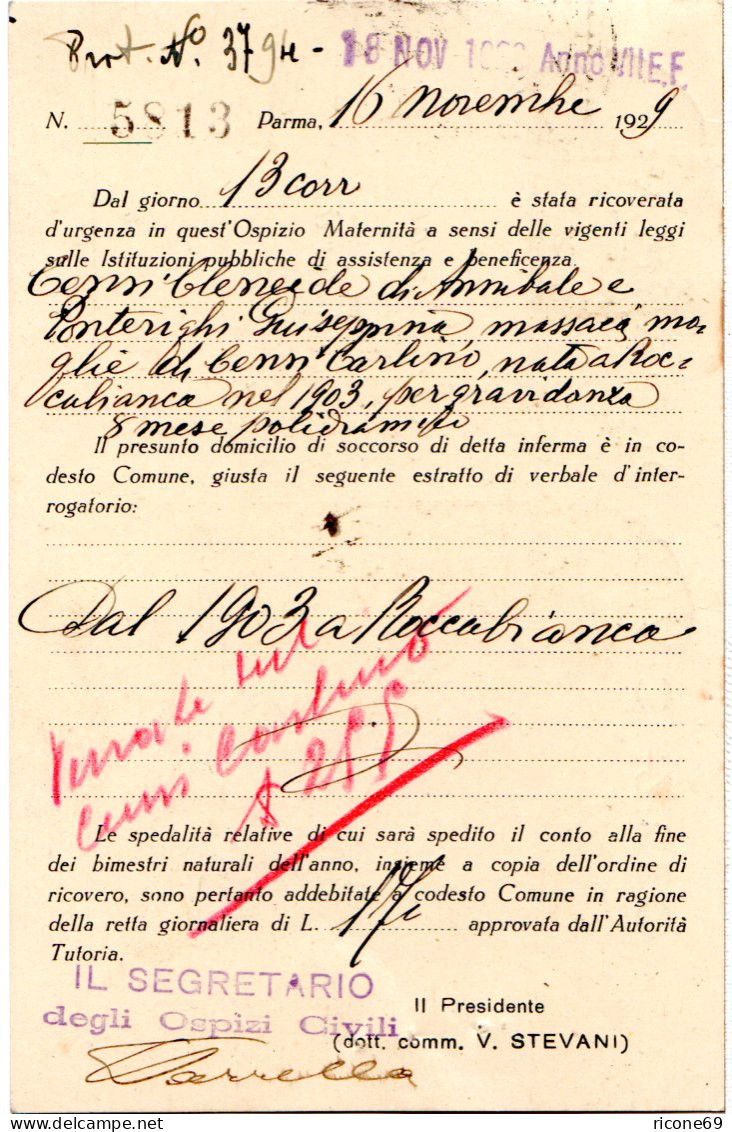 Prot. N.º 3794 - 18 NOV 1929 Anno VIII E.F.
N. 5813 Parma, 16 novembre 1929
Dal giorno 13 corr è stata ricoverata
d'urgenza in quest'Ospizio Maternità a sensi delle vigenti leggi
sulle Istituzioni pubbliche di assistenza e beneficenza
Cenni Cleneide di Annibale e
Ponterighi Guiseppina, massaia, mo-
glie di Cenni Carlino, nata a Roc-
cabianca nel 1903, per gravidanza
8 mese
Il presunto domicilio di soccorso di detta inferma è in co-
desto Comune, giusta il seguente estratto di verbale d'inter-
rogatorio:
Dal 1903 a Roccabianca
Cenni Carlino
Le spedalità relative di cui sarà spedito il conto alla fine
dei bimestri naturali dell'anno, insieme a copia dell'ordine di
ricovero, sono pertanto addebitate a codesto Comune in ragione
della retta giornaliera di L. 17 approvata dall'Autorità
Tutoria.
IL SEGRETARIO
degli Ospizi Civili
Il Presidente
(dott. comm. V. STEVANI)
ricone69